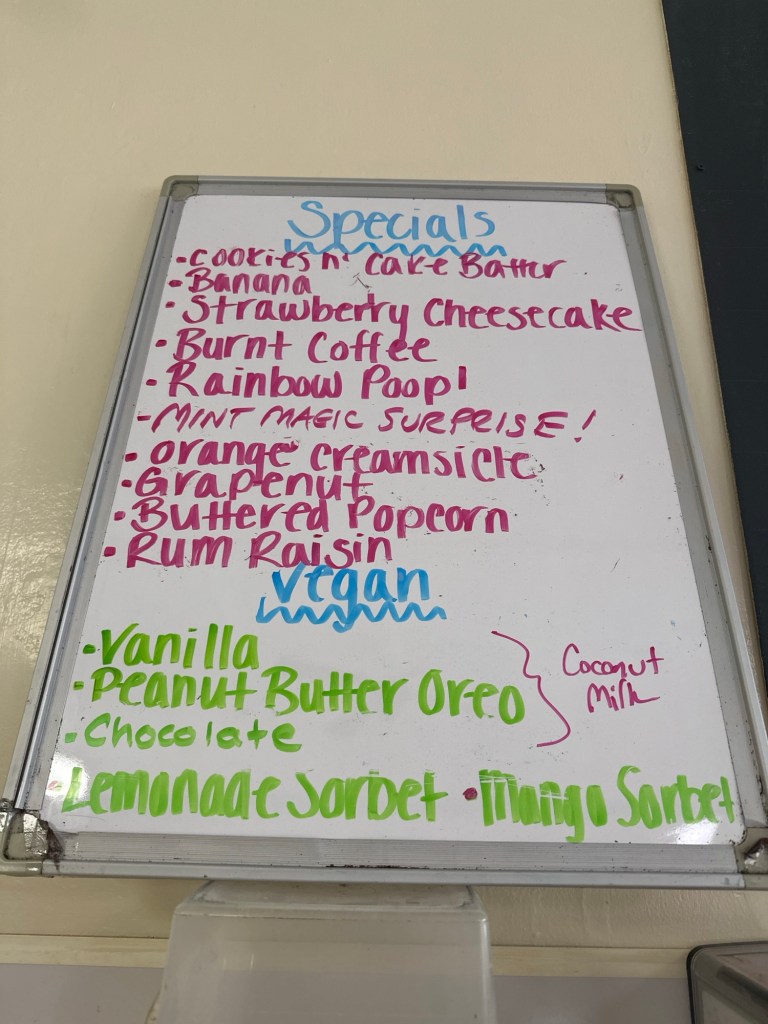 Specials
•Cookies n' Cake Batter
•Banana
•Strawberry Cheesecake
•Burnt Coffee
•Rainbow Poop!
-MINT MAGIC SURPRISE!
•orange creamsicle
•Grapenut
•Buttered Popcorn
•Rum Raisin
vegan
•Vanilla
•Peanut Butter Oreo
•Chocolate
Coconut
Milk
•Lemonade Sorbet •Mango Sorbet